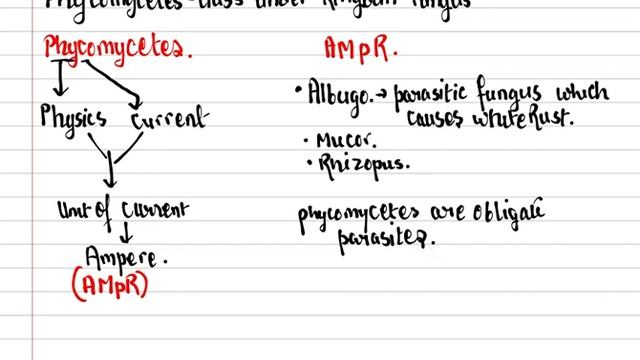 Phycomycetes-class under Kingdom fungus
Phycomycetes.
Physics Current
Unit of current
Ampere.
(AMpR)
AMpR.
• Albugo. → parasitic fungus which
causes white Rust.
• Mucor.
• Rhizopus.
phycomycetes are obligate
parasites.